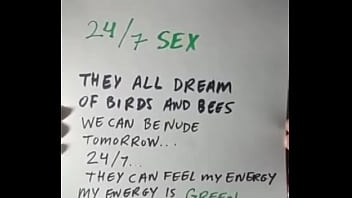 24/7 SEX
THEY ALL DREAM
OF BIRDS AND BEES
WE CAN BE NUDE
TOMORROW...
24/7...
THEY CAN FEEL MY ENERGY
MY ENERGY IS GREEN